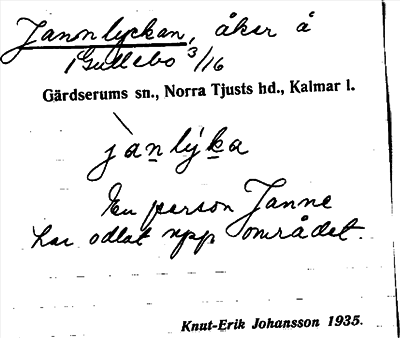 Janonlyckan, åker å
1 Gullebo 3/16
Gärdserums sn., Norra Tjusts hd., Kalmar l.
janlýka
En person Janne
har odlat upp området.
Knut-Erik Johansson 1935.